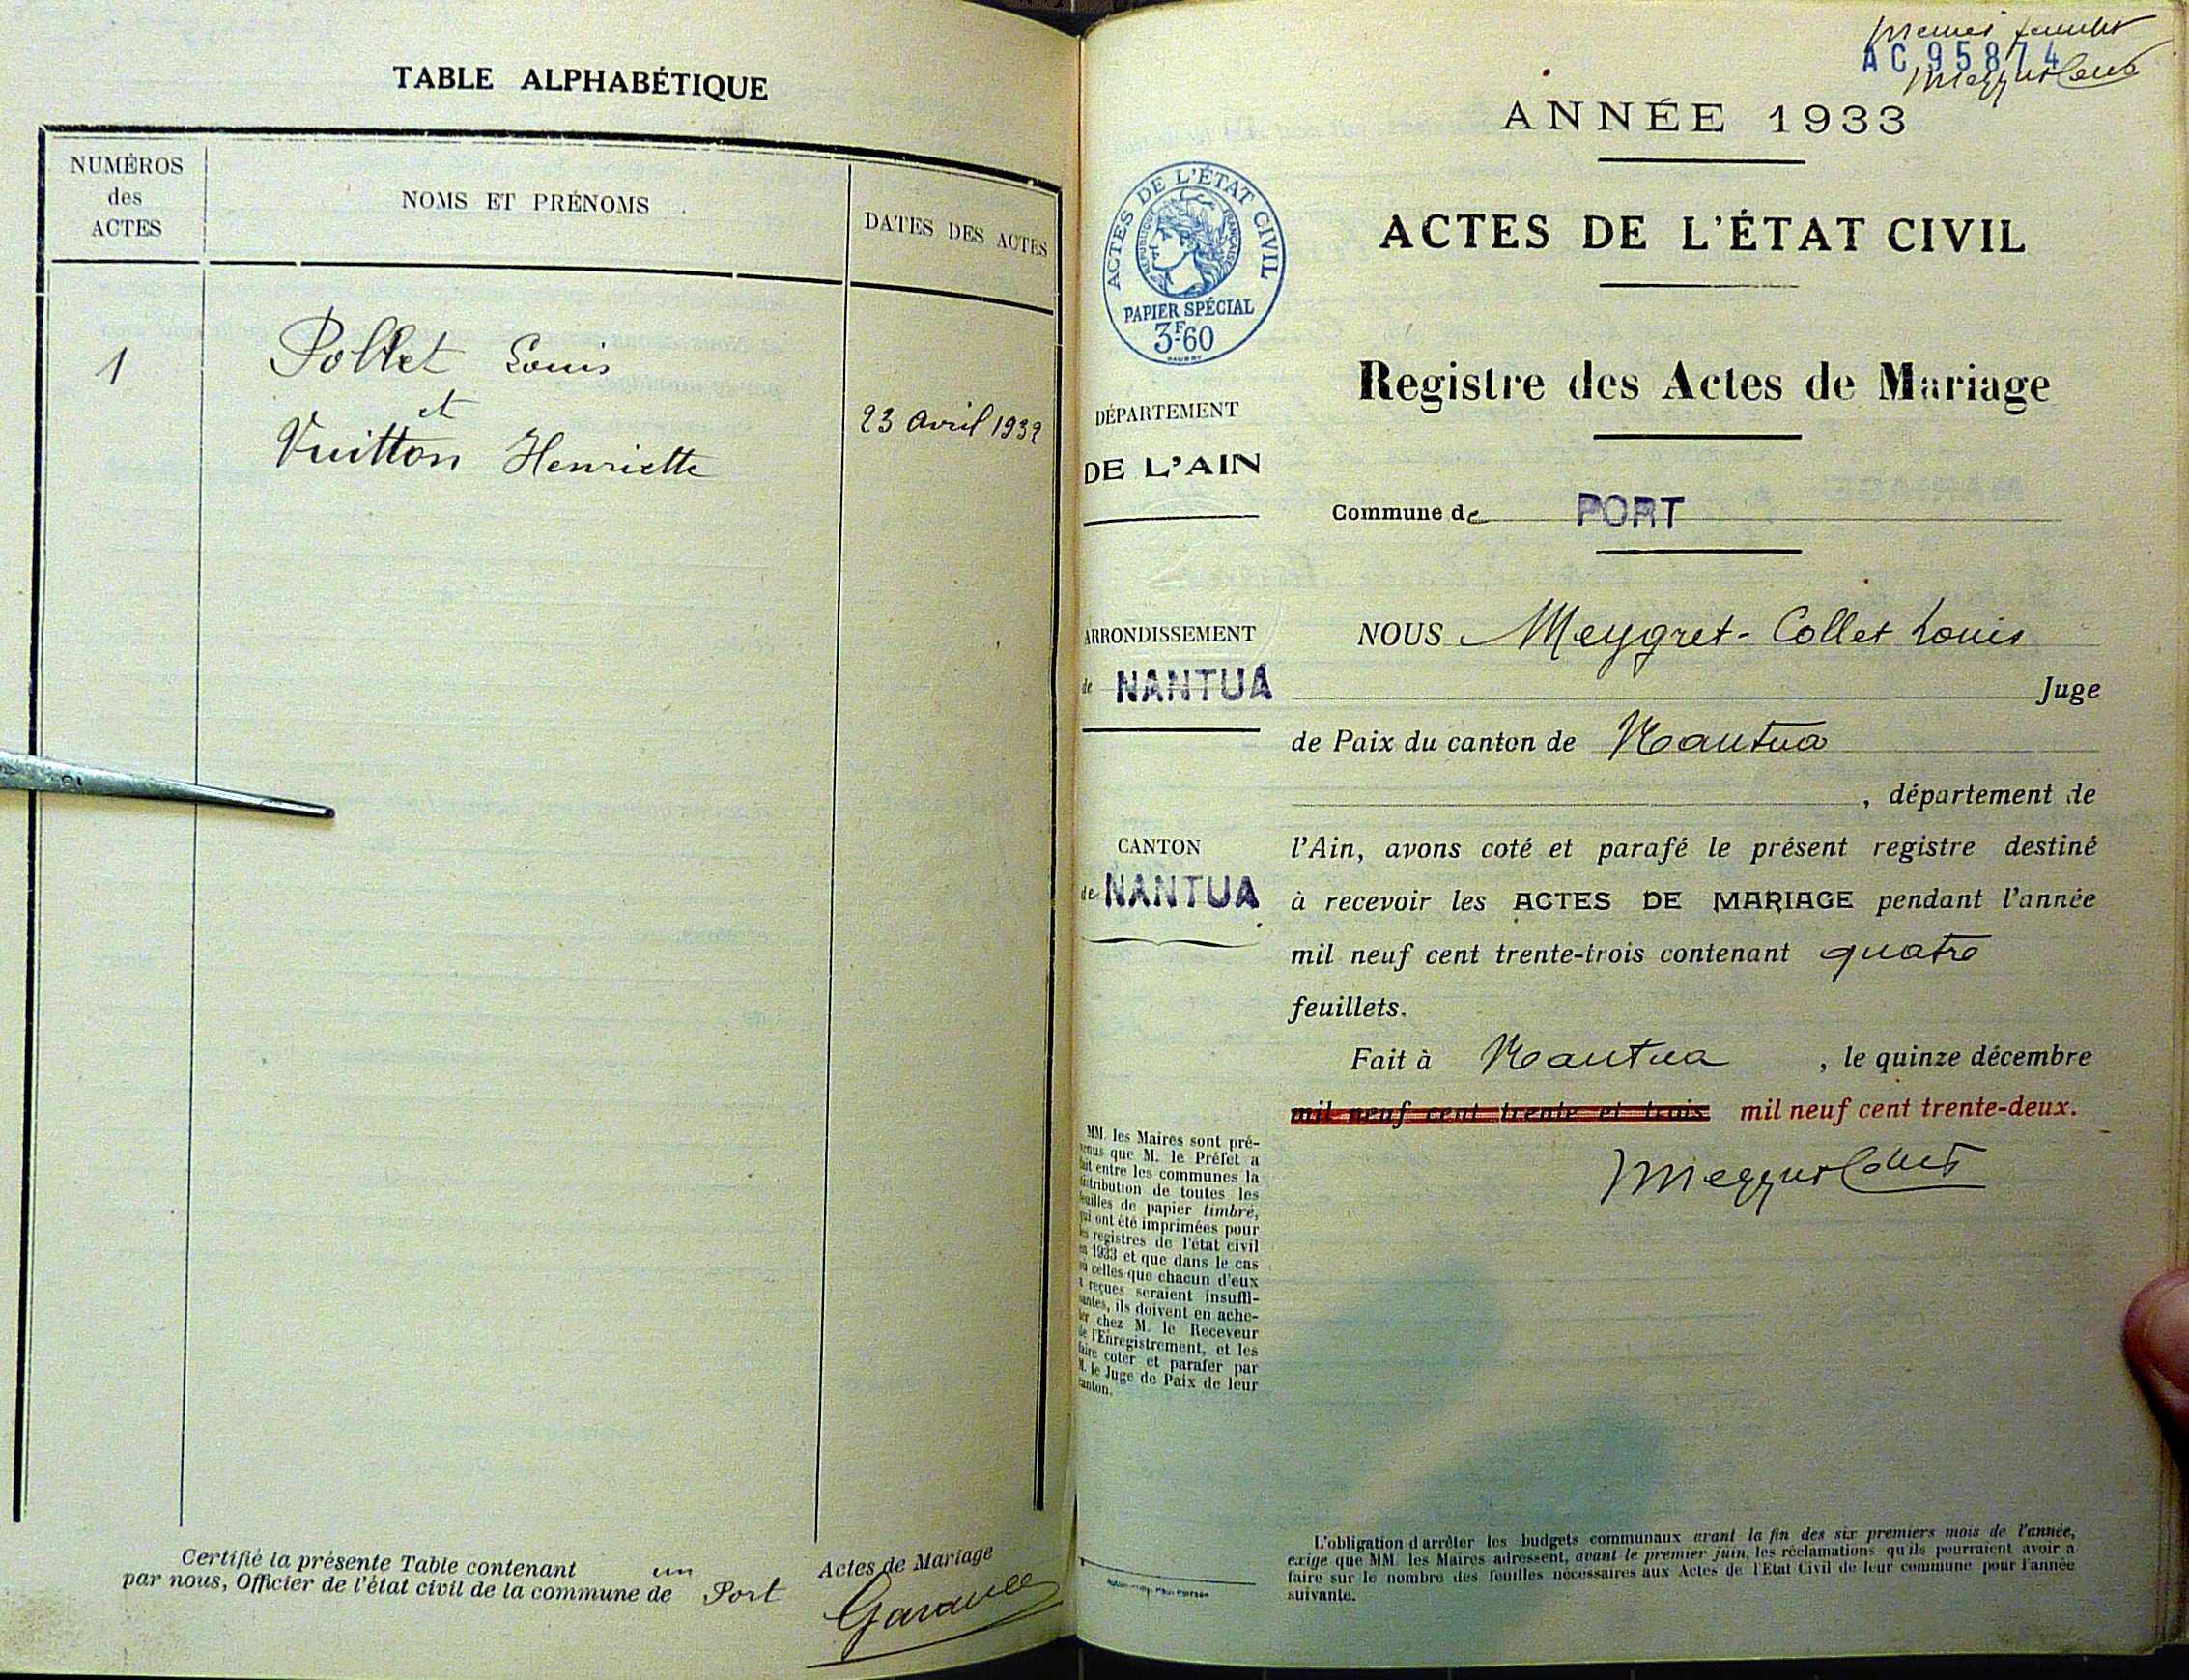 TABLE ALPHABÉTIQUE
NUMÉROS
des
ACTES
NOMS ET PRÉNOMS
DATES DES ACTES
1
Pollet Louis
et
Vuitton Henriette
23 avril 1932
Certifié la présente Table contenant un Actes de Mariage
par nous, Officier de l'état civil de la commune de Port
premier feuillet
AC 95874
ANNÉE 1933
ACTES DE L'ÉTAT CIVIL
RÉPUBLIQUE FRANÇAISE
PAPIER SPÉCIAL
3F60
ACTES DE L'ÉTAT CIVIL
Registre des Actes de Mariage
DÉPARTEMENT
DE L'AIN
Commune de PORT
ARRONDISSEMENT
de NANTUA
CANTON
de NANTUA
NOUS Meygret-Collet Louis
Juge
de Paix du canton de Nantua
, département de
l'Ain, avons coté et parafé le présent registre destiné
à recevoir les ACTES DE MARIAGE pendant l'année
mil neuf cent trente-trois contenant quatre
feuillets.
Fait à Nantua, le quinze décembre
mil neuf cent trente et trois mil neuf cent trente-deux.
Meygret Collet
MM. les Maires sont pré-
venus que M. le Préfet a
fait entre les communes la
distribution de toutes les
feuilles de papier timbré,
qui ont été imprimées pour
les registres de l'état civil
en 1933 et que dans le cas
où celles que chacun d'eux
a reçues seraient insuffi-
santes, ils doivent en ache-
ter chez M. le Receveur
de l'Enregistrement, et les
faire coter et parafer par
M. le Juge de Paix de leur
canton.
L'obligation d'arrêter les budgets communaux avant la fin des six premiers mois de l'année,
exige que MM. les Maires adressent, avant le premier juin, les réclamations qu'ils pourraient avoir à
faire sur le nombre des feuilles nécessaires aux Actes de l'État Civil de leur commune pour l'année
suivante.